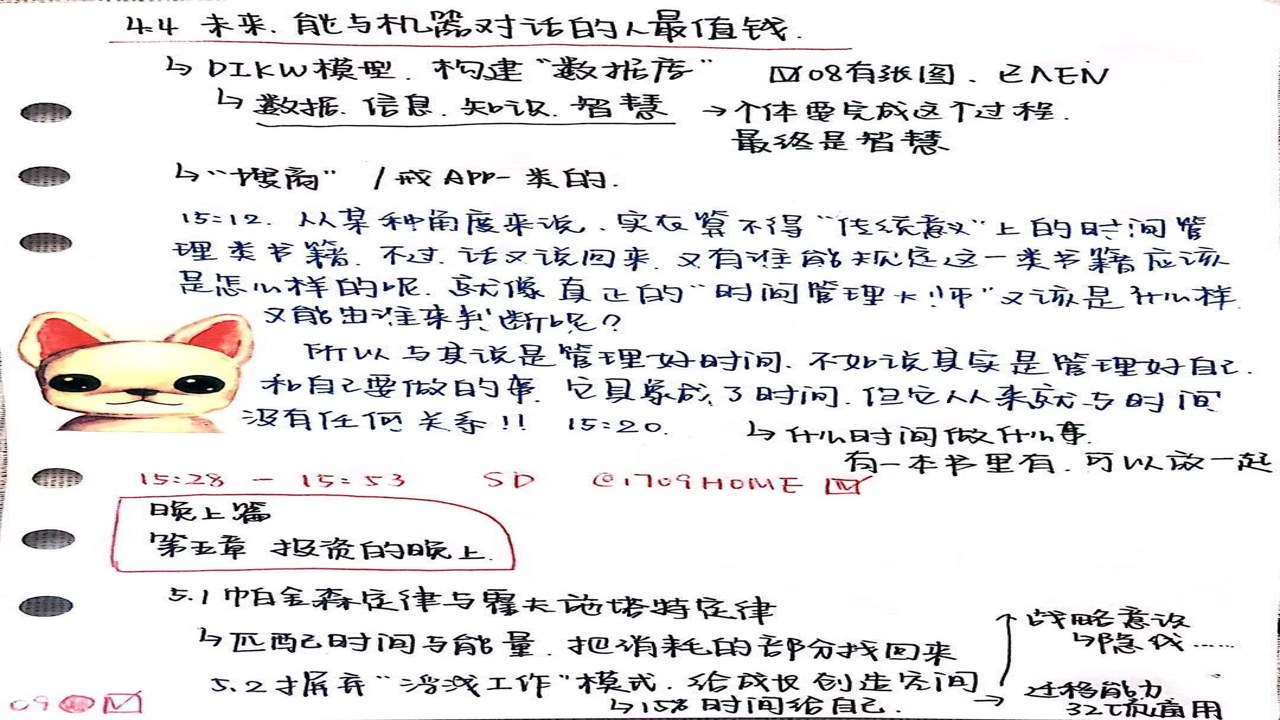 4.4 未来、能与机器对话的人最值钱.
↳ DIKW模型. 构建“数据库” ☑08有张图、已入EN
↳ 数据. 信息. 知识. 智慧 → 个体要完成这个过程.
最终是智慧
↳ “搜商” / 戒APP一类的.
15:12. 从某种角度来说、实在算不得“传统意义”上的时间管
理类书籍. 不过. 话又说回来. 又有谁能规定这一类书籍应该
是怎么样的呢. 就像真正的“时间管理大师”又该是什么样.
又能由谁来判断呢?
所以与其说是管理好时间. 不如说其实是管理好自己.
和自己要做的事. 它具象成了时间. 但它从来就与时间
没有任何关系!! 15:20.
↳ 什么时间做什么事.
有一本书里有. 可以放一起
15:28 - 15:53 SD @1709HOME ☑
晚上篇
第五章 投资的晚上.
5.1 帕金森定律与霍夫施塔特定律
↳ 匹配时间与能量. 把消耗的部分找回来
5.2 摒弃“浮浅工作”模式. 给成长创造空间
↳ 15% 时间给自己.
战略意识
↳ 隐线……
→ 迁移能力
09 ☑